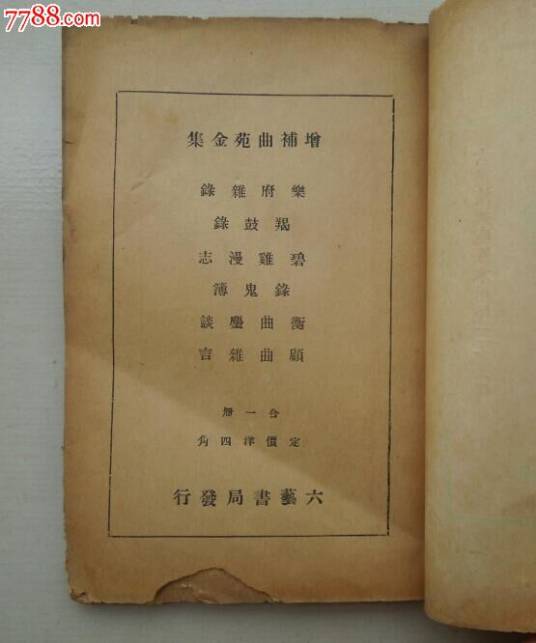 7788.com
增補曲苑金集
樂府雜錄
羯鼓錄
碧雞漫志
錄鬼簿
衡曲麈談
顧曲雜言
合一冊
定價洋四角
六藝書局發行